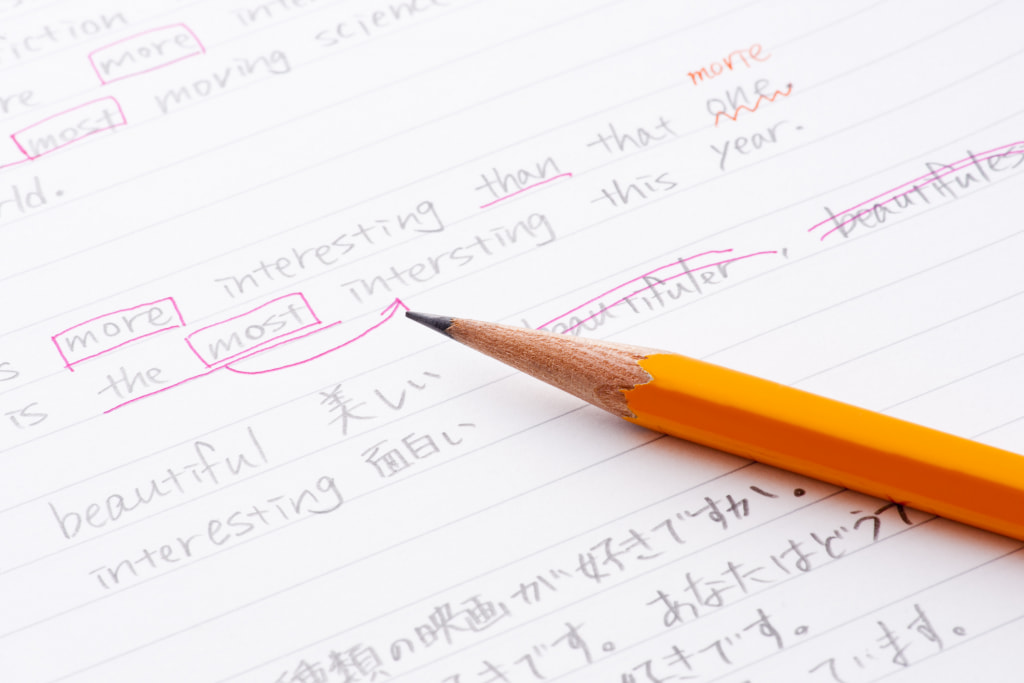 fiction more inte
re more
most moving science
rld.
more
interesting than that one.
more most intersting this year.
is the
beautifuler, beautifules
beautiful 美しい
interesting 面白い
種類の映画が好きですか。
きです。あなたはどうて
好きです。
ています。